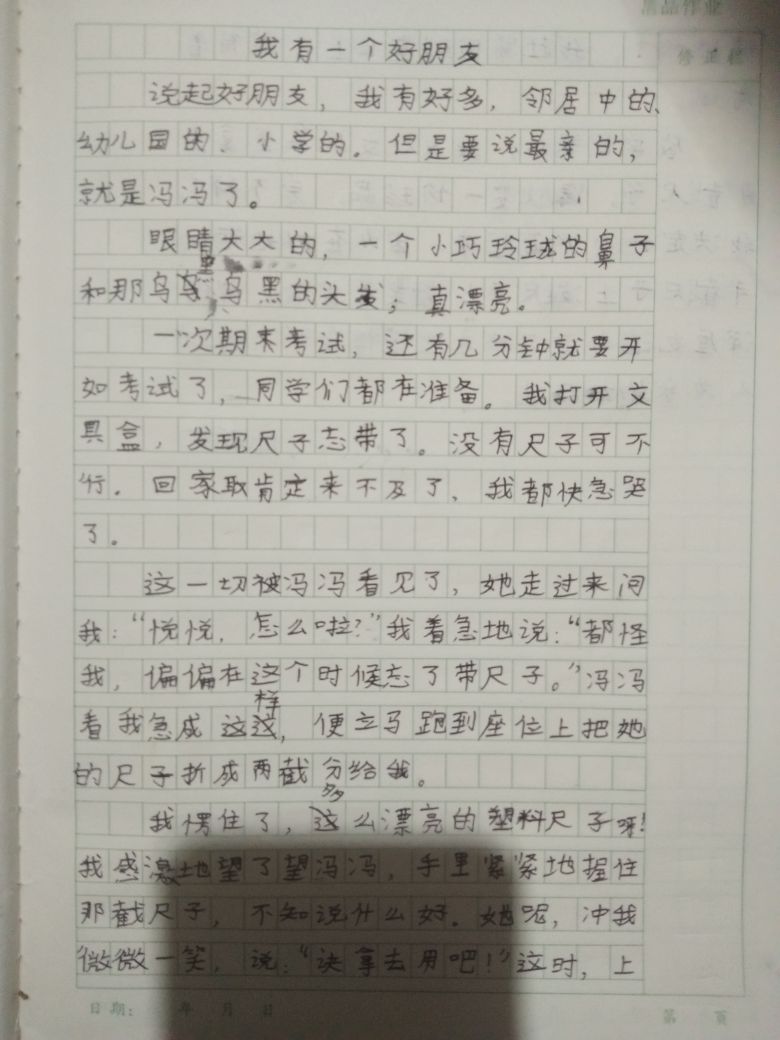 黑品作业
修正栏
我有一个好朋友
说起好朋友，我有好多，邻居中的、
幼儿园的、小学的。但是要说最亲的，
就是冯冯了。
眼睛大大的，一个小巧玲珑的鼻子
和那乌黑乌黑的头发；真漂亮。
一次期末考试，还有几分钟就要开
如考试了，同学们都在准备。我打开文
具盒，发现尺子忘带了。没有尺子可不
行。回家取肯定来不及了，我都快急哭
了。
这一切被冯冯看见了，她走过来问
我：“悦悦，怎么啦？”我着急地说：“都怪
我，偏偏在这个时候忘了带尺子。”冯冯
看我急成这样，便立马跑到座位上把她
的尺子折成两截分给我。
我愣住了，多么漂亮的塑料尺子呀！
我感激地望了望冯冯，手里紧紧地握住
那截尺子，不知说什么好。她呢，冲我
微微一笑，说：“快拿去用吧！”这时，上
日期： 年 月 日 第 页